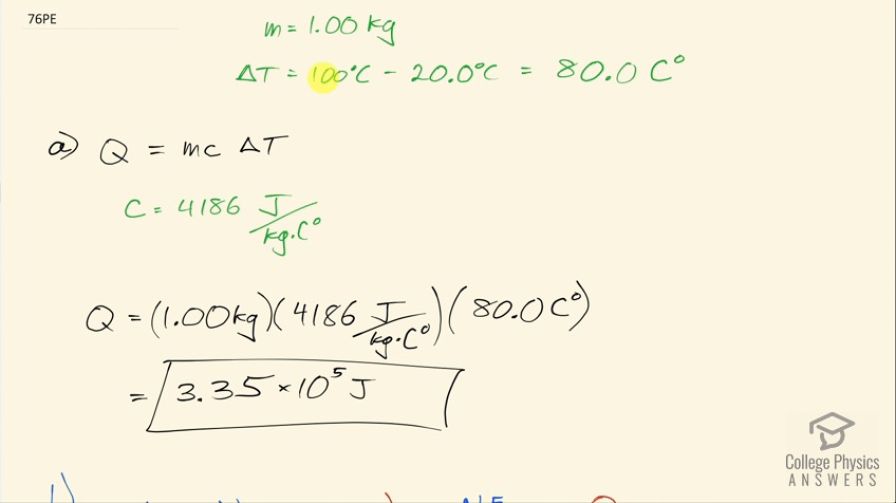 76PE
m = 1.00 kg
ΔT = 100°C - 20.0°C = 80.0 C°
a) Q = mc ΔT
C = 4186 J/kg·C°
Q = (1.00kg)(4186 J/kg·C°)(80.0 C°)
= 3.35 × 10⁵ J
College Physics
ANSWERS